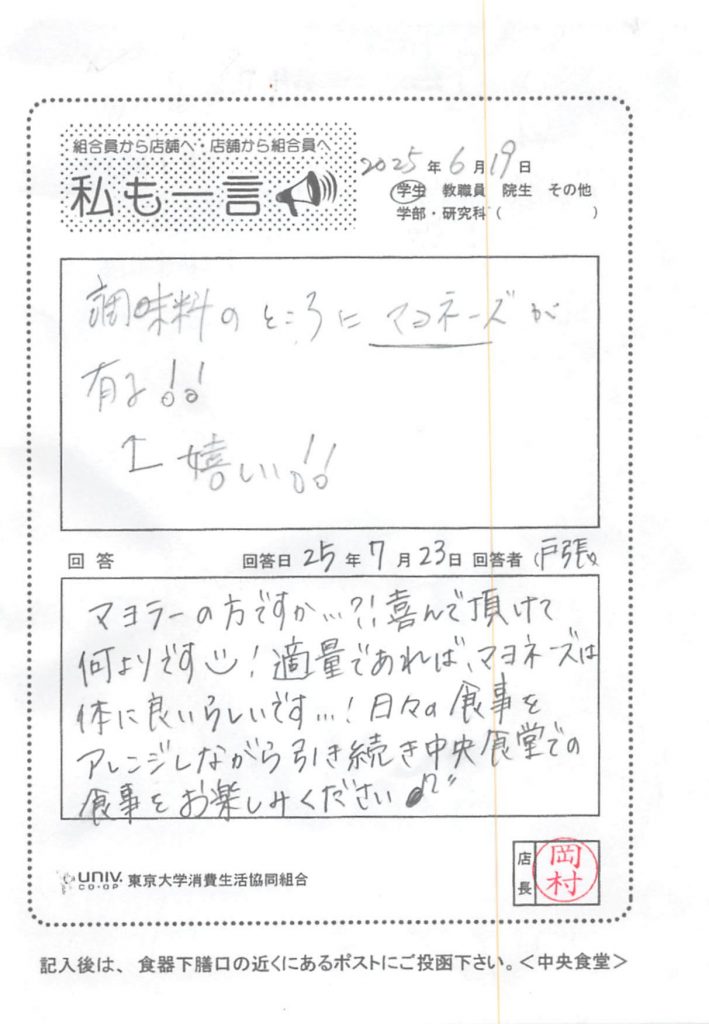 組合員から店舗へ・店舗から組合員へ
私も一言
2025年6月19日
学生 教職員 院生 その他
学部・研究科( )
調味料のところにマヨネーズが
有る!!
↑嬉しい!!
回答 回答日 25年7月23日 回答者 (戸張)
マヨラーの方ですか…?!喜んで頂けて
何よりです!適量であれば、マヨネーズは
体に良いらしいです…!日々の食事を
アレンジしながら引き続き中央食堂での
食事をお楽しみください♪"
店長 岡村
UNIV. CO・OP 東京大学消費生活協同組合
記入後は、食器下膳口の近くにあるポストにご投函下さい。<中央食堂>